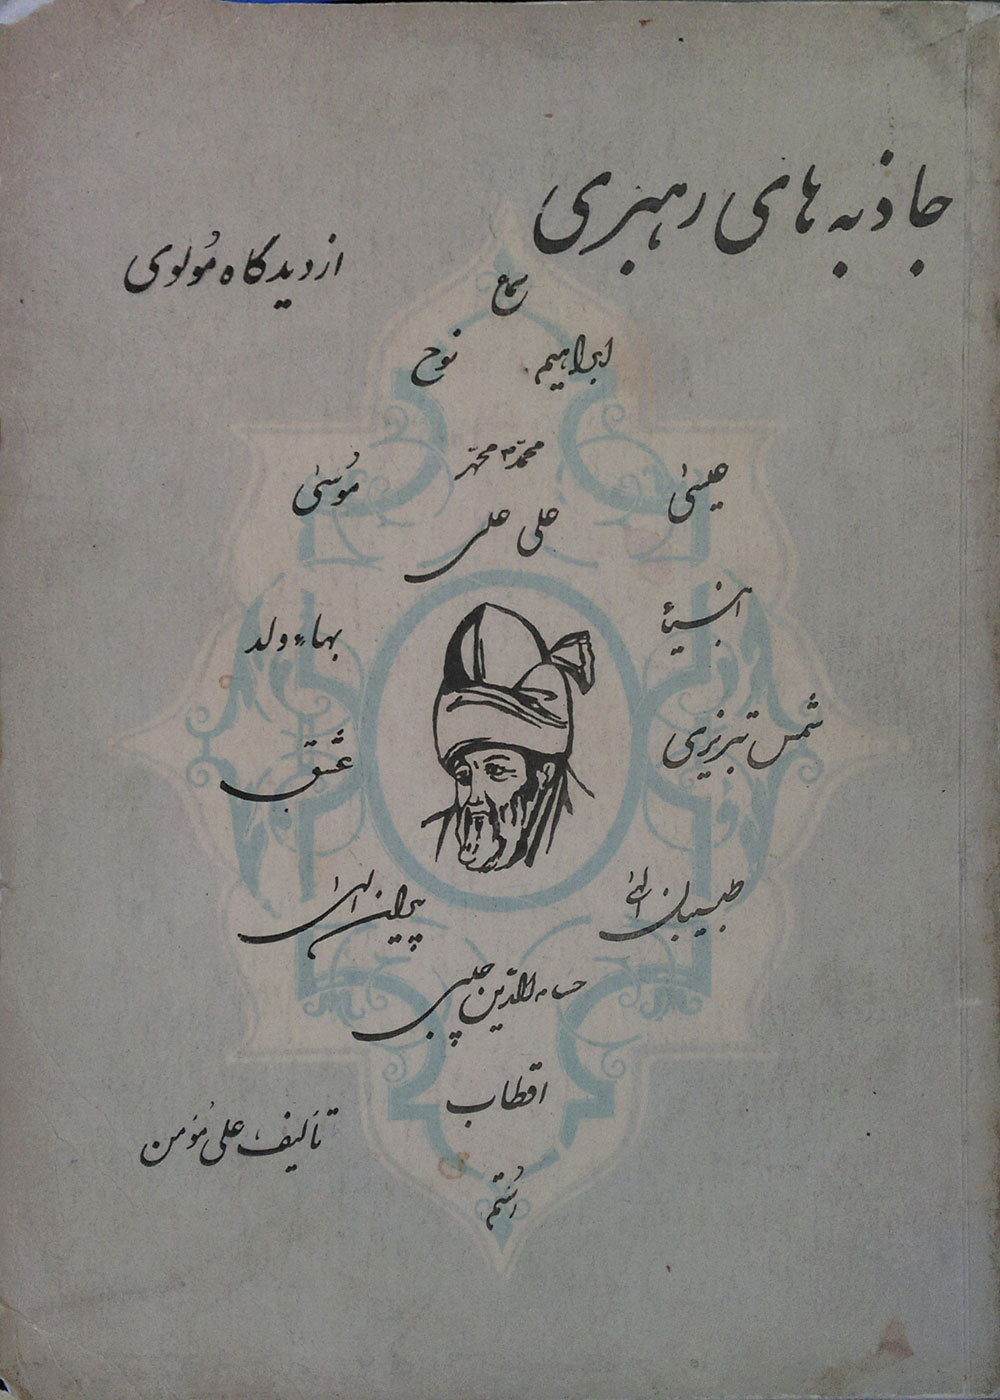 جاذبه های رهبری
از دیدگاه مُولوی
سماع
ابراهیم نوح
محمّد محمّد
عیسیٰ مُوسیٰ
علی علی
انبیاء
بهاء ولد
شمس تبریزی
عشق
طبیبان الهیٰ
پیران الهیٰ
حسام الدّین چلبی
اقطاب
تألیف علی مُؤمن
رُستم